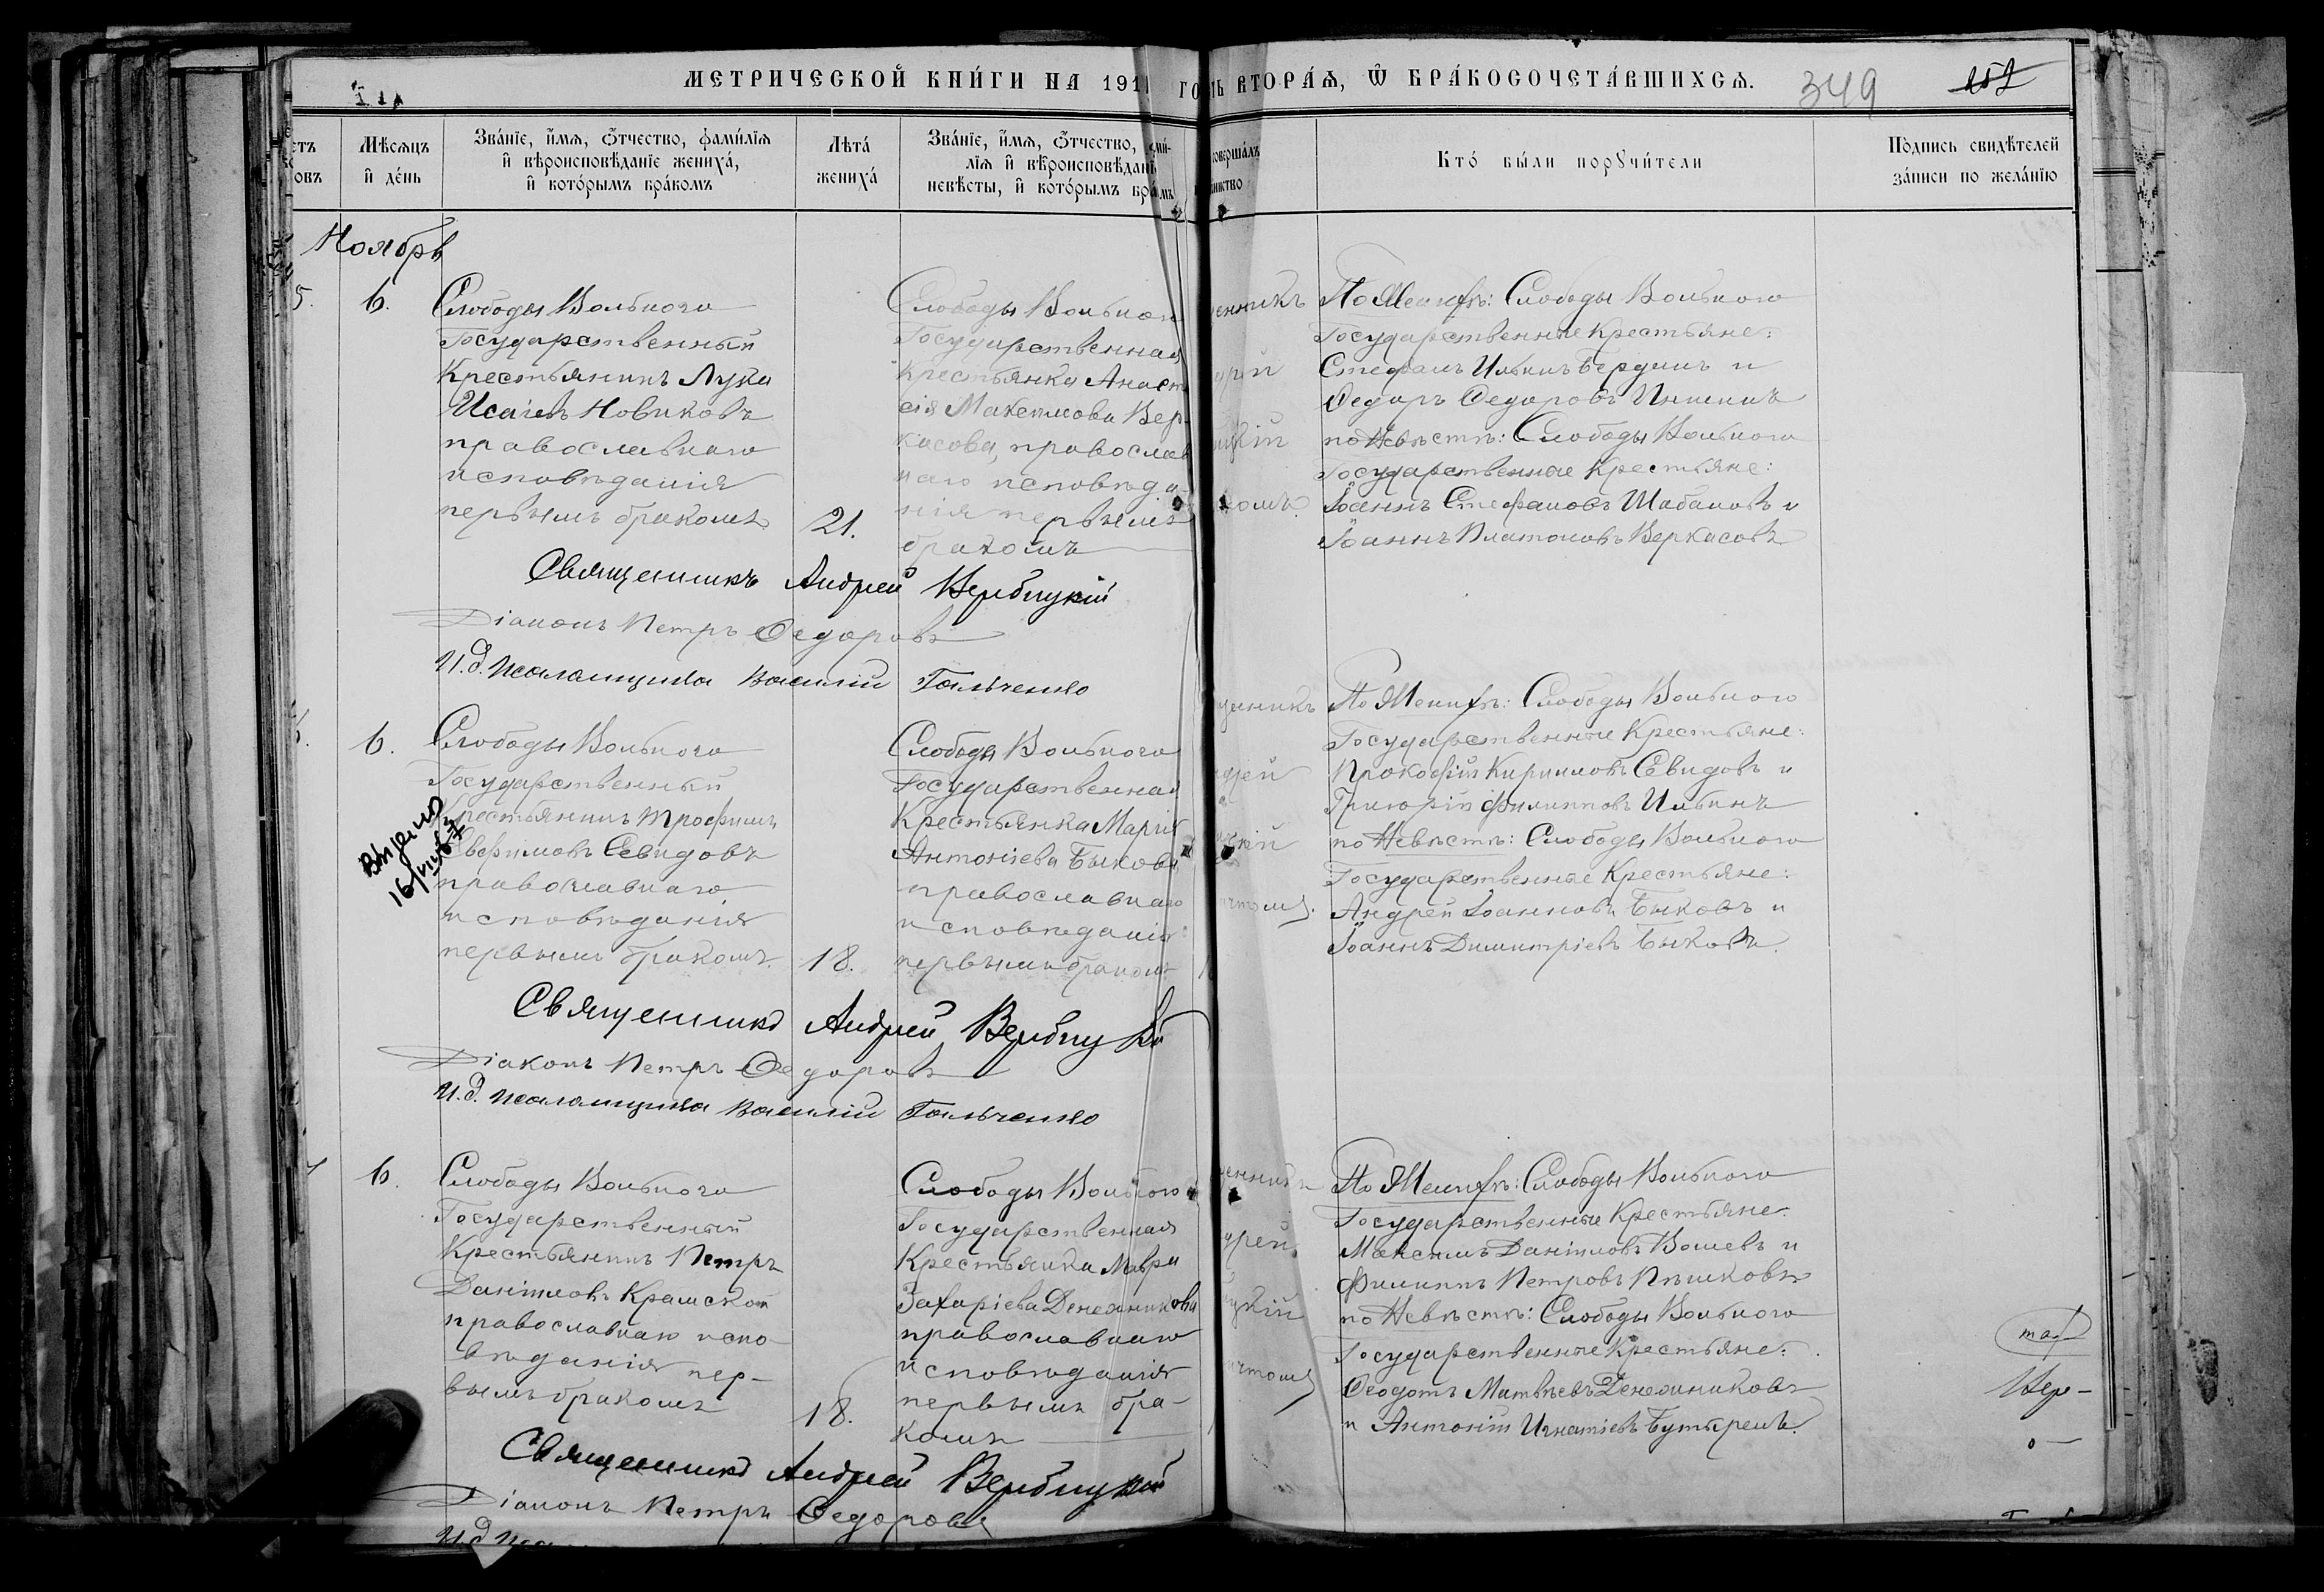 МЕТРИЧЕСКОЙ КНИ́ГИ НА 1911 ГО ВТОРА́Ѧ, Ѿ БРА́КОСОЧЕТА́ВШИХСѦ.
349
Мѣсѧцъ
и҆ де́нь
Зва́нїе, и҆́мѧ, ѻ҆́тчество, фами́лїѧ
и҆ вѣроисповѣ́данїе жениха̀,
и҆ кото́рымъ бра́комъ
Лѣта̀
жениха̀
Зва́нїе, и҆́мѧ, ѻ҆́тчество,
лїѧ и҆ вѣроисповѣ́данїе
невѣ́сты, и҆ кото́рымъ бракомъ
совершалъ
Кто̀ бы́ли порꙋчи́тели
По́дпись свидѣ́телей
за́писи по жела́нїю
Ноябрь
5.
6.
Слободы Вольного
Государственный
Крестьянинъ Лука
Исаіевъ Новиковъ
православнаго
исповѣданія
первымъ бракомъ
21.
Слободы Вольного
Государственная
Крестьянка Анаста
сія Максимова Вер-
касова, православ
наго исповѣда-
нія первымъ
бракомъ
По Женихѣ: Слободы Вольного
Государственные Крестьяне:
Стефанъ Ильинъ Бердинъ и
Ѳедоръ Ѳедоровъ Ининъ
по Невѣстѣ: Слободы Вольного
Государственные Крестьяне:
Іоаннъ Стефановъ Шабановъ и
Іоаннъ Платоновъ Веркасовъ
Священникъ Андрей Вербицкій
Діаконъ Петръ Ѳедоровъ
И.д. псаломщика Василій Гальченко
6.
Слободы Вольного
Государственный
Крестьянинъ Трофимъ
Евфимовъ Севидовъ
православнаго
исповѣданія
первымъ бракомъ.
18.
Слободы Вольного
Государственная
Крестьянка Марія
Антоніева Быкова
православнаго
исповѣданія
первымъ бракомъ
По Женихѣ: Слободы Вольного
Государственные Крестьяне:
Прокофій Кирилловъ Севидовъ и
Григорій Филипповъ Ильинъ
по Невѣстѣ: Слободы Вольного
Государственные Крестьяне:
Андрей Іоанновъ Быковъ и
Іоаннъ Димитріевъ Быковъ.
Священникъ Андрей Вербицкій
Діаконъ Петръ Ѳедоровъ
И.д. псаломщика Василій Гальченко
6.
Слободы Вольного
Государственный
Крестьянинъ Петръ
Даніиловъ Крамской
православнаго испо-
вѣданія пер-
вымъ бракомъ
18.
Слободы Вольного
Государственная
Крестьянка Мавра
Захаріева Денежникова
православнаго
исповѣданія
первымъ бра-
комъ
По Женихѣ: Слободы Вольного
Государственные Крестьяне:
Максимъ Даніиловъ Вошевъ и
Филиппъ Петровъ Пѣшковъ
по Невѣстѣ: Слободы Вольного
Государственные Крестьяне:
Ѳеодотъ Матвѣевъ Денежниковъ
и Антоній Игнатіевъ Бутыревъ.
Священникъ Андрей Вербицкій
Діаконъ Петръ Ѳедоровъ